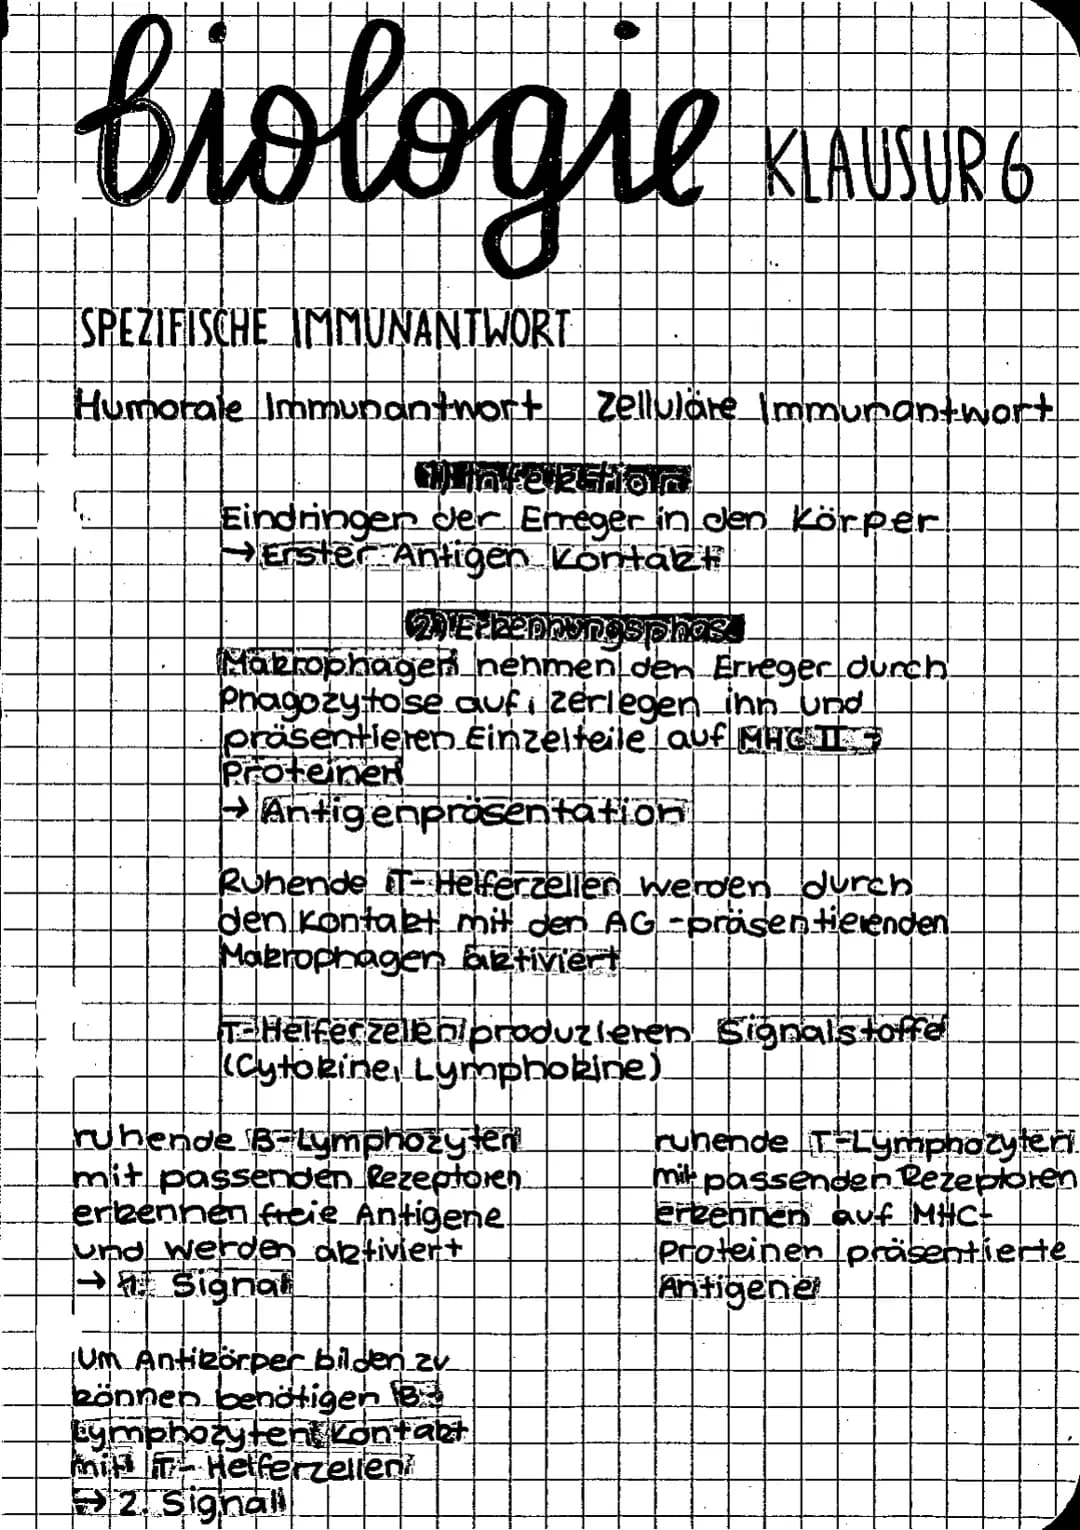 biologie KLAUSUR 6
SPEZIFISCHE IMMUNANTWORT
Humorale Immunantwort Zelluläre Immunantwort
1) Infektion
Eindringen der Erreger in den Körper
→ Erster Antigen Kontakt
2) Erkennungsphase
Makrophagen nehmen den Erreger durch
Phagozytose auf, zerlegen ihn und
präsentieren Einzelteile auf MHC II -
Proteinen
→ Antigenpräsentation
Ruhende T-Helferzellen werden durch
den Kontakt mit den AG-präsentierenden
Makrophagen aktiviert
T-Helferzellen produzieren Signalstoffe
(Cytokine, Lymphokine)
ruhende B-Lymphozyten
mit passenden Rezeptoren
erkennen freie Antigene
und werden aktiviert
→ 1. Signal
Um Antikörper bilden zu
können benötigen B-
Lymphozyten Kontakt
mit T-Helferzellen
→ 2. Signal
ruhende T-Lymphozyten
mit passenden Rezeptoren
erkennen auf MHC-
Proteinen präsentierte
Antigene